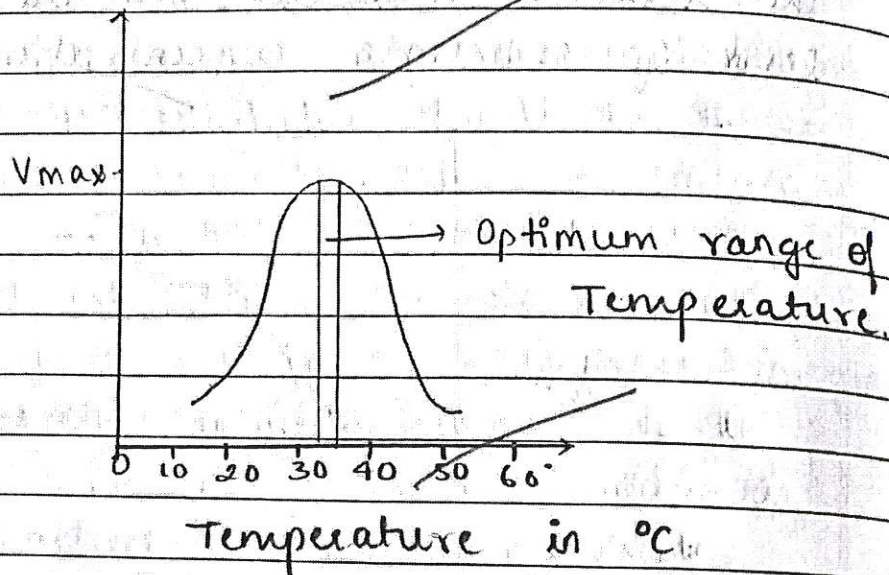 Vmax
Optimum range of
Temperature.
0 10 20 30 40 50 60°
Temperature in °C